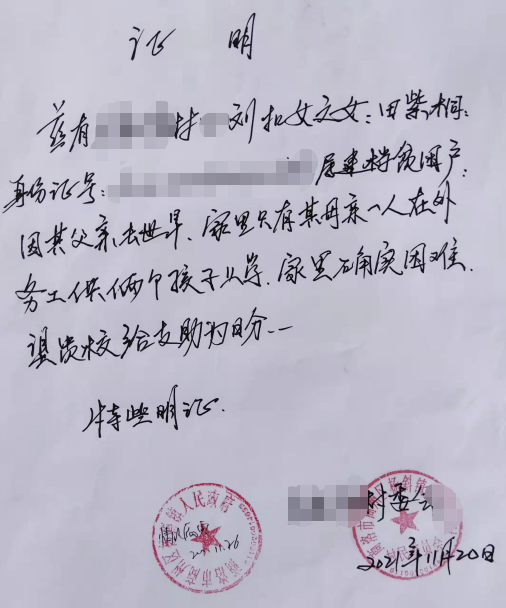 证 明
兹有村刘 女之女:田紫桐:
身份证号:属建档贫困户:
因其父亲去世早、家里只有其母亲一人在外
务工供俩个孩子上学、家里确实困难、
望贵校给支助为盼
特此明证.
情况属实
人民政府
村委会
2021年11月20日